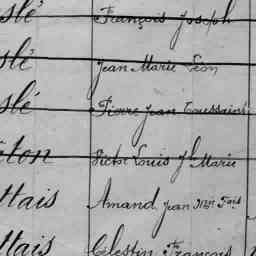 slé François Joseph
slé Jean Marie Léon
slé Pierre Jean Toussaint
ton Victor Louis Jh Marie
ttais Amand Jean Mie Fois
ttais Célestin François